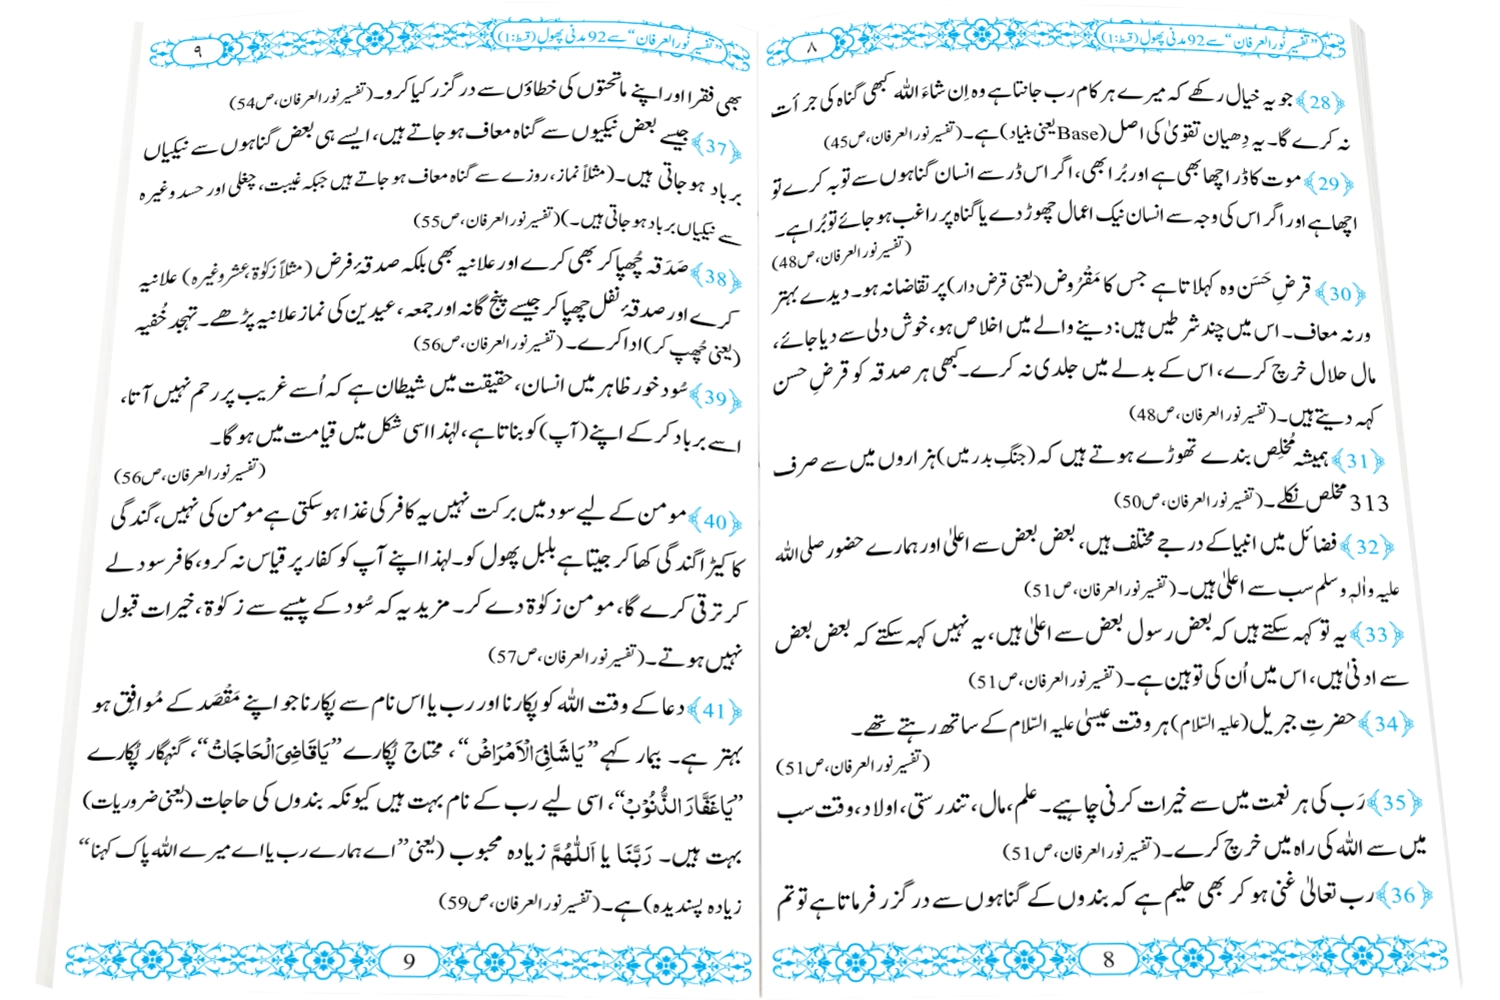 "تفسیر نُور العرفان" سے 92 مدنی پھول (قسط:1)
۸
﴿28﴾ جو یہ خیال رکھے کہ میرے ہر کام رب جانتا ہے وہ اِن شاءَ اللہ کبھی گناہ کی جرأت
نہ کرے گا۔ یہ دِھیان تقویٰ کی اصل (Base یعنی بنیاد) ہے۔ (تفسیر نور العرفان، ص45)
﴿29﴾ موت کا ڈر اچھا بھی ہے اور بُرا بھی، اگر اس ڈر سے انسان گناہوں سے توبہ کرے تو
اچھا ہے اور اگر اس کی وجہ سے انسان نیک اعمال چھوڑ دے یا گناہ پر راغب ہو جائے تو بُرا ہے۔
(تفسیر نور العرفان، ص48)
﴿30﴾ قرضِ حَسَن وہ کہلاتا ہے جس کا مَقْرُوض (یعنی قرض دار) پر تقاضا نہ ہو۔ دیدے بہتر
ورنہ معاف۔ اس میں چند شرطیں ہیں: دینے والے میں اخلاص ہو، خوش دلی سے دیا جائے،
مال حلال خرچ کرے، اس کے بدلے میں جلدی نہ کرے۔ کبھی ہر صدقہ کو قرضِ حسن
کہہ دیتے ہیں۔ (تفسیر نور العرفان، ص48)
﴿31﴾ ہمیشہ مُخلِص بندے تھوڑے ہوتے ہیں کہ (جنگِ بدر میں) ہزاروں میں سے صرف
313 مخلص نکلے۔ (تفسیر نور العرفان، ص50)
﴿32﴾ فضائل میں انبیا کے درجے مختلف ہیں، بعض بعض سے اعلیٰ اور ہمارے حضور صلی اللہ
علیہ واٰلہٖ وسلم سب سے اعلیٰ ہیں۔ (تفسیر نور العرفان، ص51)
﴿33﴾ یہ تو کہہ سکتے ہیں کہ بعض رسول بعض سے اعلیٰ ہیں، یہ نہیں کہہ سکتے کہ بعض بعض
سے ادنیٰ ہیں، اس میں اُن کی توہین ہے۔ (تفسیر نور العرفان، ص51)
﴿34﴾ حضرتِ جبریل (علیہ السّلام) ہر وقت عیسیٰ علیہ السّلام کے ساتھ رہتے تھے۔
(تفسیر نور العرفان، ص51)
﴿35﴾ رَب کی ہر نعمت میں سے خیرات کرنی چاہیے۔ علم، مال، تندرستی، اولاد، وقت سب
میں سے اللہ کی راہ میں خرچ کرے۔ (تفسیر نور العرفان، ص51)
﴿36﴾ رب تعالیٰ غنی ہو کر بھی حلیم ہے کہ بندوں کے گناہوں سے درگزر فرماتا ہے تو تم
8
"تفسیر نُور العرفان" سے 92 مدنی پھول (قسط:1)
۹
بھی فقرا اور اپنے ماتحتوں کی خطاؤں سے درگزر کیا کرو۔ (تفسیر نور العرفان، ص54)
﴿37﴾ جیسے بعض نیکیوں سے گناہ معاف ہو جاتے ہیں، ایسے ہی بعض گناہوں سے نیکیاں
برباد ہو جاتی ہیں۔ (مثلاً نماز، روزے سے گناہ معاف ہو جاتے ہیں جبکہ غیبت، چغلی اور حسد وغیرہ
سے نیکیاں برباد ہو جاتی ہیں۔) (تفسیر نور العرفان، ص55)
﴿38﴾ صَدَقہ چُھپا کر بھی کرے اور علانیہ بھی بلکہ صدقۂ فرض (مثلاً زکوٰۃ، عشر وغیرہ) علانیہ
کرے اور صدقۂ نفل چھپا کر جیسے پنج گانہ اور جمعہ، عیدین کی نماز علانیہ پڑھے۔ تہجد خُفیہ
(یعنی چُھپ کر) ادا کرے۔ (تفسیر نور العرفان، ص56)
﴿39﴾ سُود خور ظاہر میں انسان، حقیقت میں شیطان ہے کہ اُسے غریب پر رحم نہیں آتا،
اسے برباد کر کے اپنے (آپ) کو بناتا ہے، لہٰذا اسی شکل میں قیامت میں ہو گا۔
(تفسیر نور العرفان، ص56)
﴿40﴾ مومن کے لیے سود میں برکت نہیں یہ کافر کی غذا ہو سکتی ہے مومن کی نہیں، گندگی
کا کیڑا گندگی کھا کر جیتا ہے بلبل پھول کو۔ لہٰذا اپنے آپ کو کفار پر قیاس نہ کرو، کافر سود لے
کر ترقی کرے گا، مومن زکوٰۃ دے کر۔ مزید یہ کہ سُود کے پیسے سے زکوٰۃ، خیرات قبول
نہیں ہوتے۔ (تفسیر نور العرفان، ص57)
﴿41﴾ دعا کے وقت اللہ کو پکارنا اور رب یا اس نام سے پکارنا جو اپنے مَقْصَد کے مُوافِق ہو
بہتر ہے۔ بیمار کہے "یَاشَافِیَ الْاَمْرَاضْ"، محتاج پُکارے "یَاقَاضِیَ الْحَاجَاتْ"، گنہگار پُکارے
"یَاغَفَّارَ الذُّنُوْبْ"، اسی لیے رب کے نام بہت ہیں کیونکہ بندوں کی حاجات (یعنی ضروریات)
بہت ہیں۔ رَبَّنَا یا اَللّٰهُمَّ زیادہ محبوب (یعنی "اے ہمارے رب یا اے میرے اللہ پاک کہنا"
زیادہ پسندیدہ) ہے۔ (تفسیر نور العرفان، ص59)
9